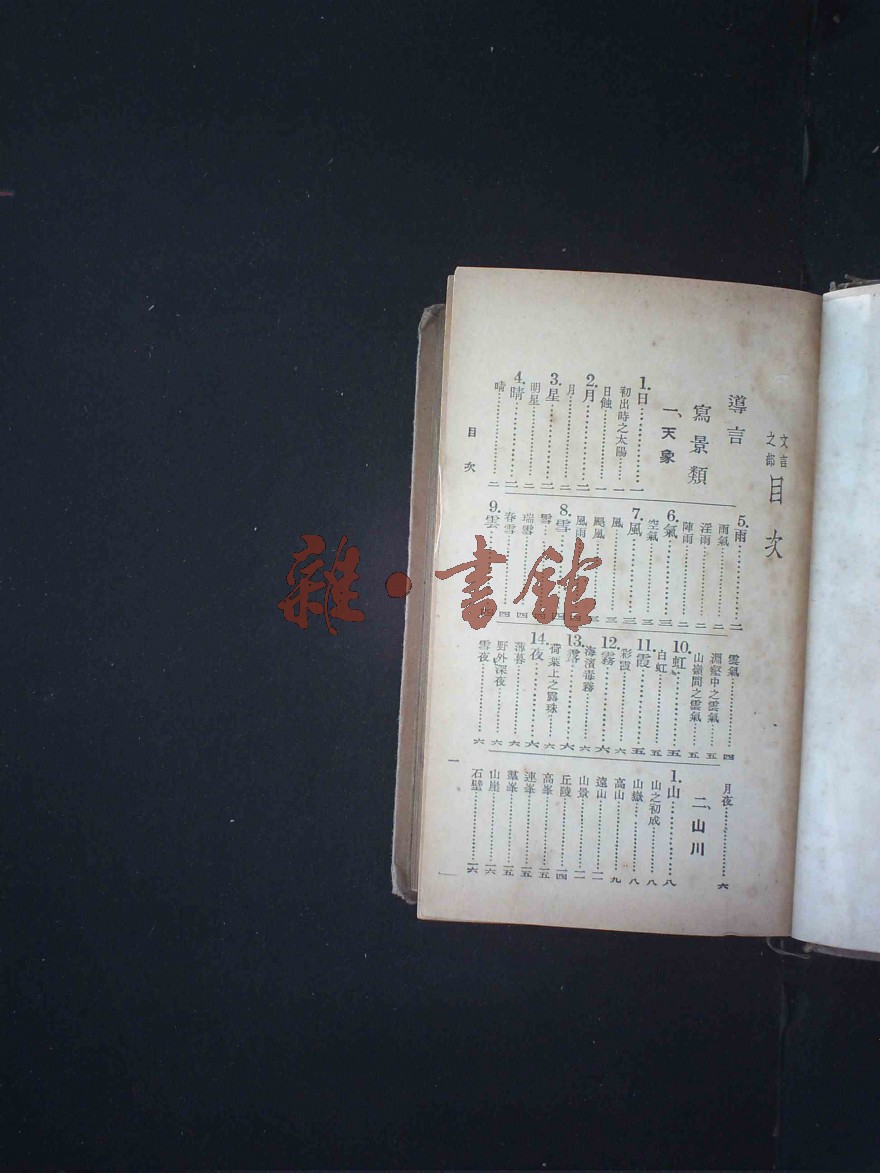 文言之部 目次
導言
寫景類
一、天象
1.日……一
初出時之太陽……一
日蝕……一
2.月……二
月……二
3.星……二
明星……二
4.晴……二
晴……二
5.雨……二
雨氣……二
淫雨……二
陣雨……二
6.氣……三
空氣……三
7.風……三
風……三
颶風……三
風雨
8.雪……四
雪
瑞雪……四
春雪……四
9.雲
雲氣……四
澗壑中之雲氣……五
山嶺間之雲氣……五
10.虹……五
白虹……五
11.霞……五
彩霞……六
12.霧……六
海濱毒霧……六
13.露……六
荷葉上之露珠……六
14.夜……六
薄暮……六
野外深夜……六
雪夜……六
月夜……六
二、山川
1.山……八
山之初成……八
山嶽……八
高山……九
遠山……一一
山景……一一
丘陵……一四
高峯……一五
連峯……一五
羣峯……一五
山崖……一六
石壁……一六
目次
一
雜·書館